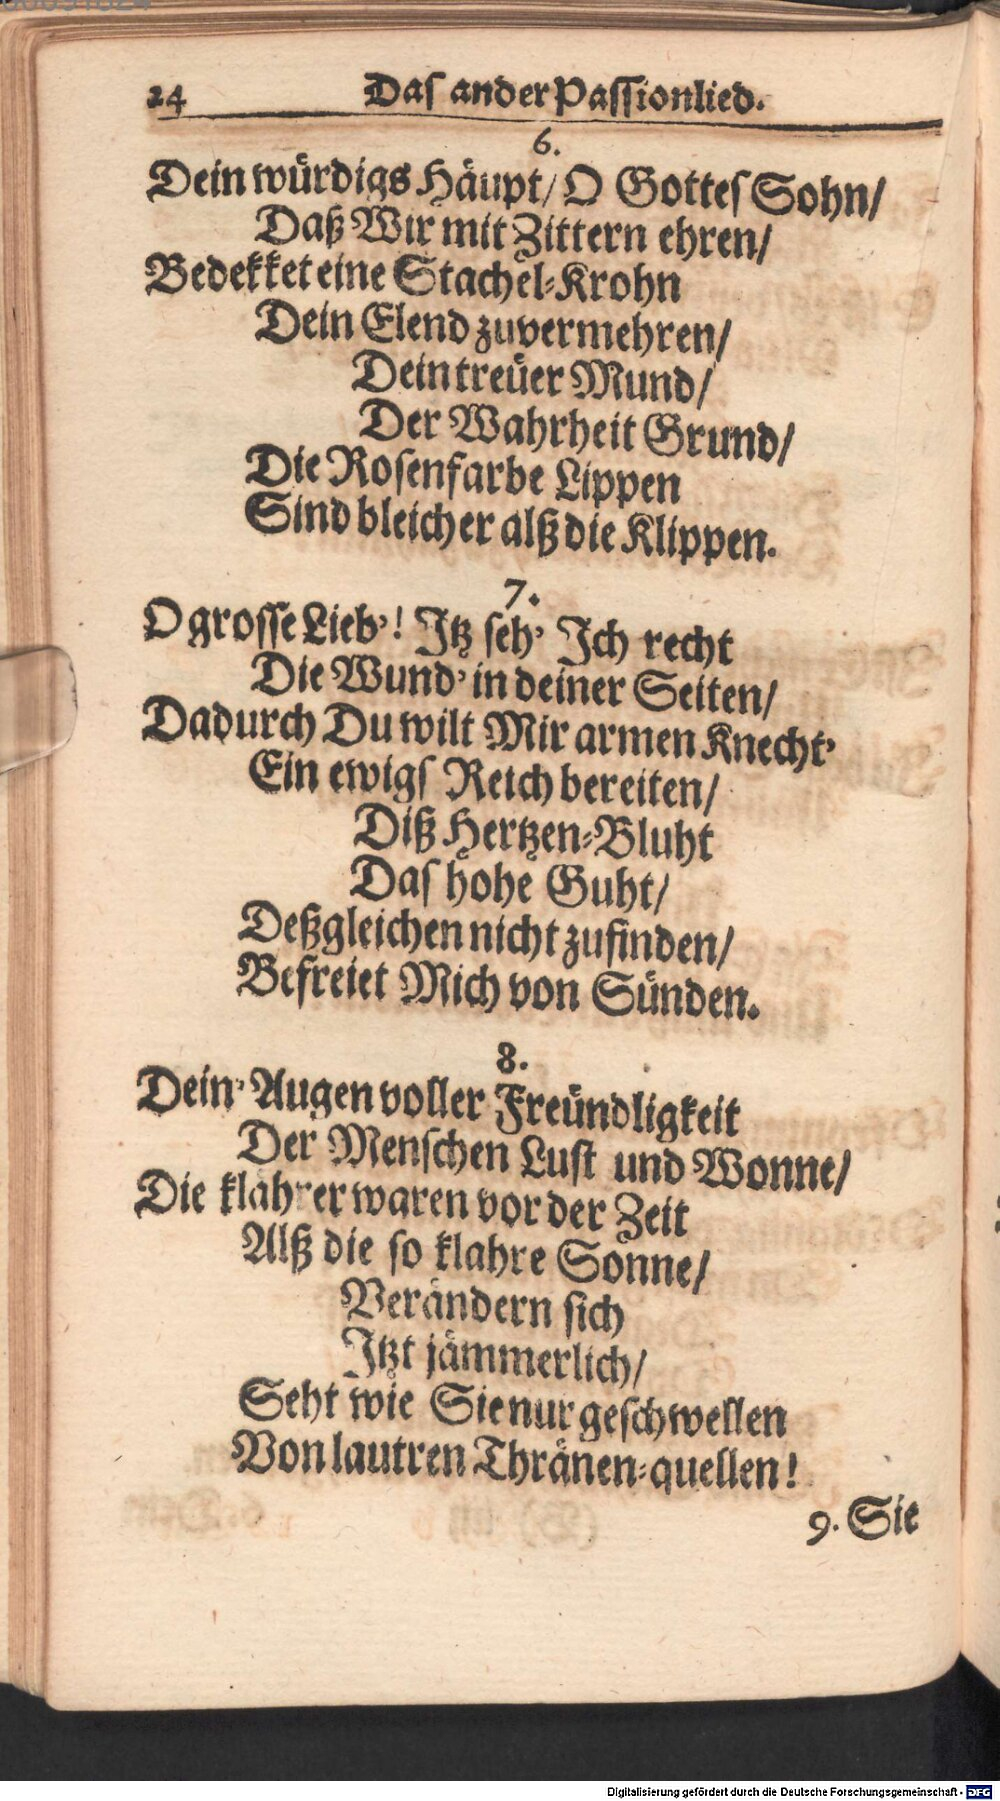 24 Das ander Passionlied.
6.
Dein würdigs Häupt/ O Gottes Sohn/
Daß Wir mit Zittern ehren/
Bedekket eine Stachel-Krohn
Dein Elend zuvermehren/
Dein treüer Mund/
Der Wahrheit Grund/
Die Rosenfarbe Lippen
Sind bleicher alß die Klippen.
7.
O grosse Lieb'! Itz seh' Ich recht
Die Wund' in deiner Seiten/
Dadurch Du wilt Mir armen Knecht'
Ein ewigs Reich bereiten/
Diß Hertzen-Bluht
Das hohe Guht/
Deßgleichen nicht zufinden/
Befreiet Mich von Sünden.
8.
Dein' Augen voller Freündligkeit
Der Menschen Lust und Wonne/
Die klahrer waren vor der Zeit
Alß die so klahre Sonne/
Verändern sich
Itzt jämmerlich/
Seht wie Sie nur geschwellen
Von lautren Thränen-quellen!
9. Sie
Digitalisierung gefördert durch die Deutsche Forschungsgemeinschaft - DFG